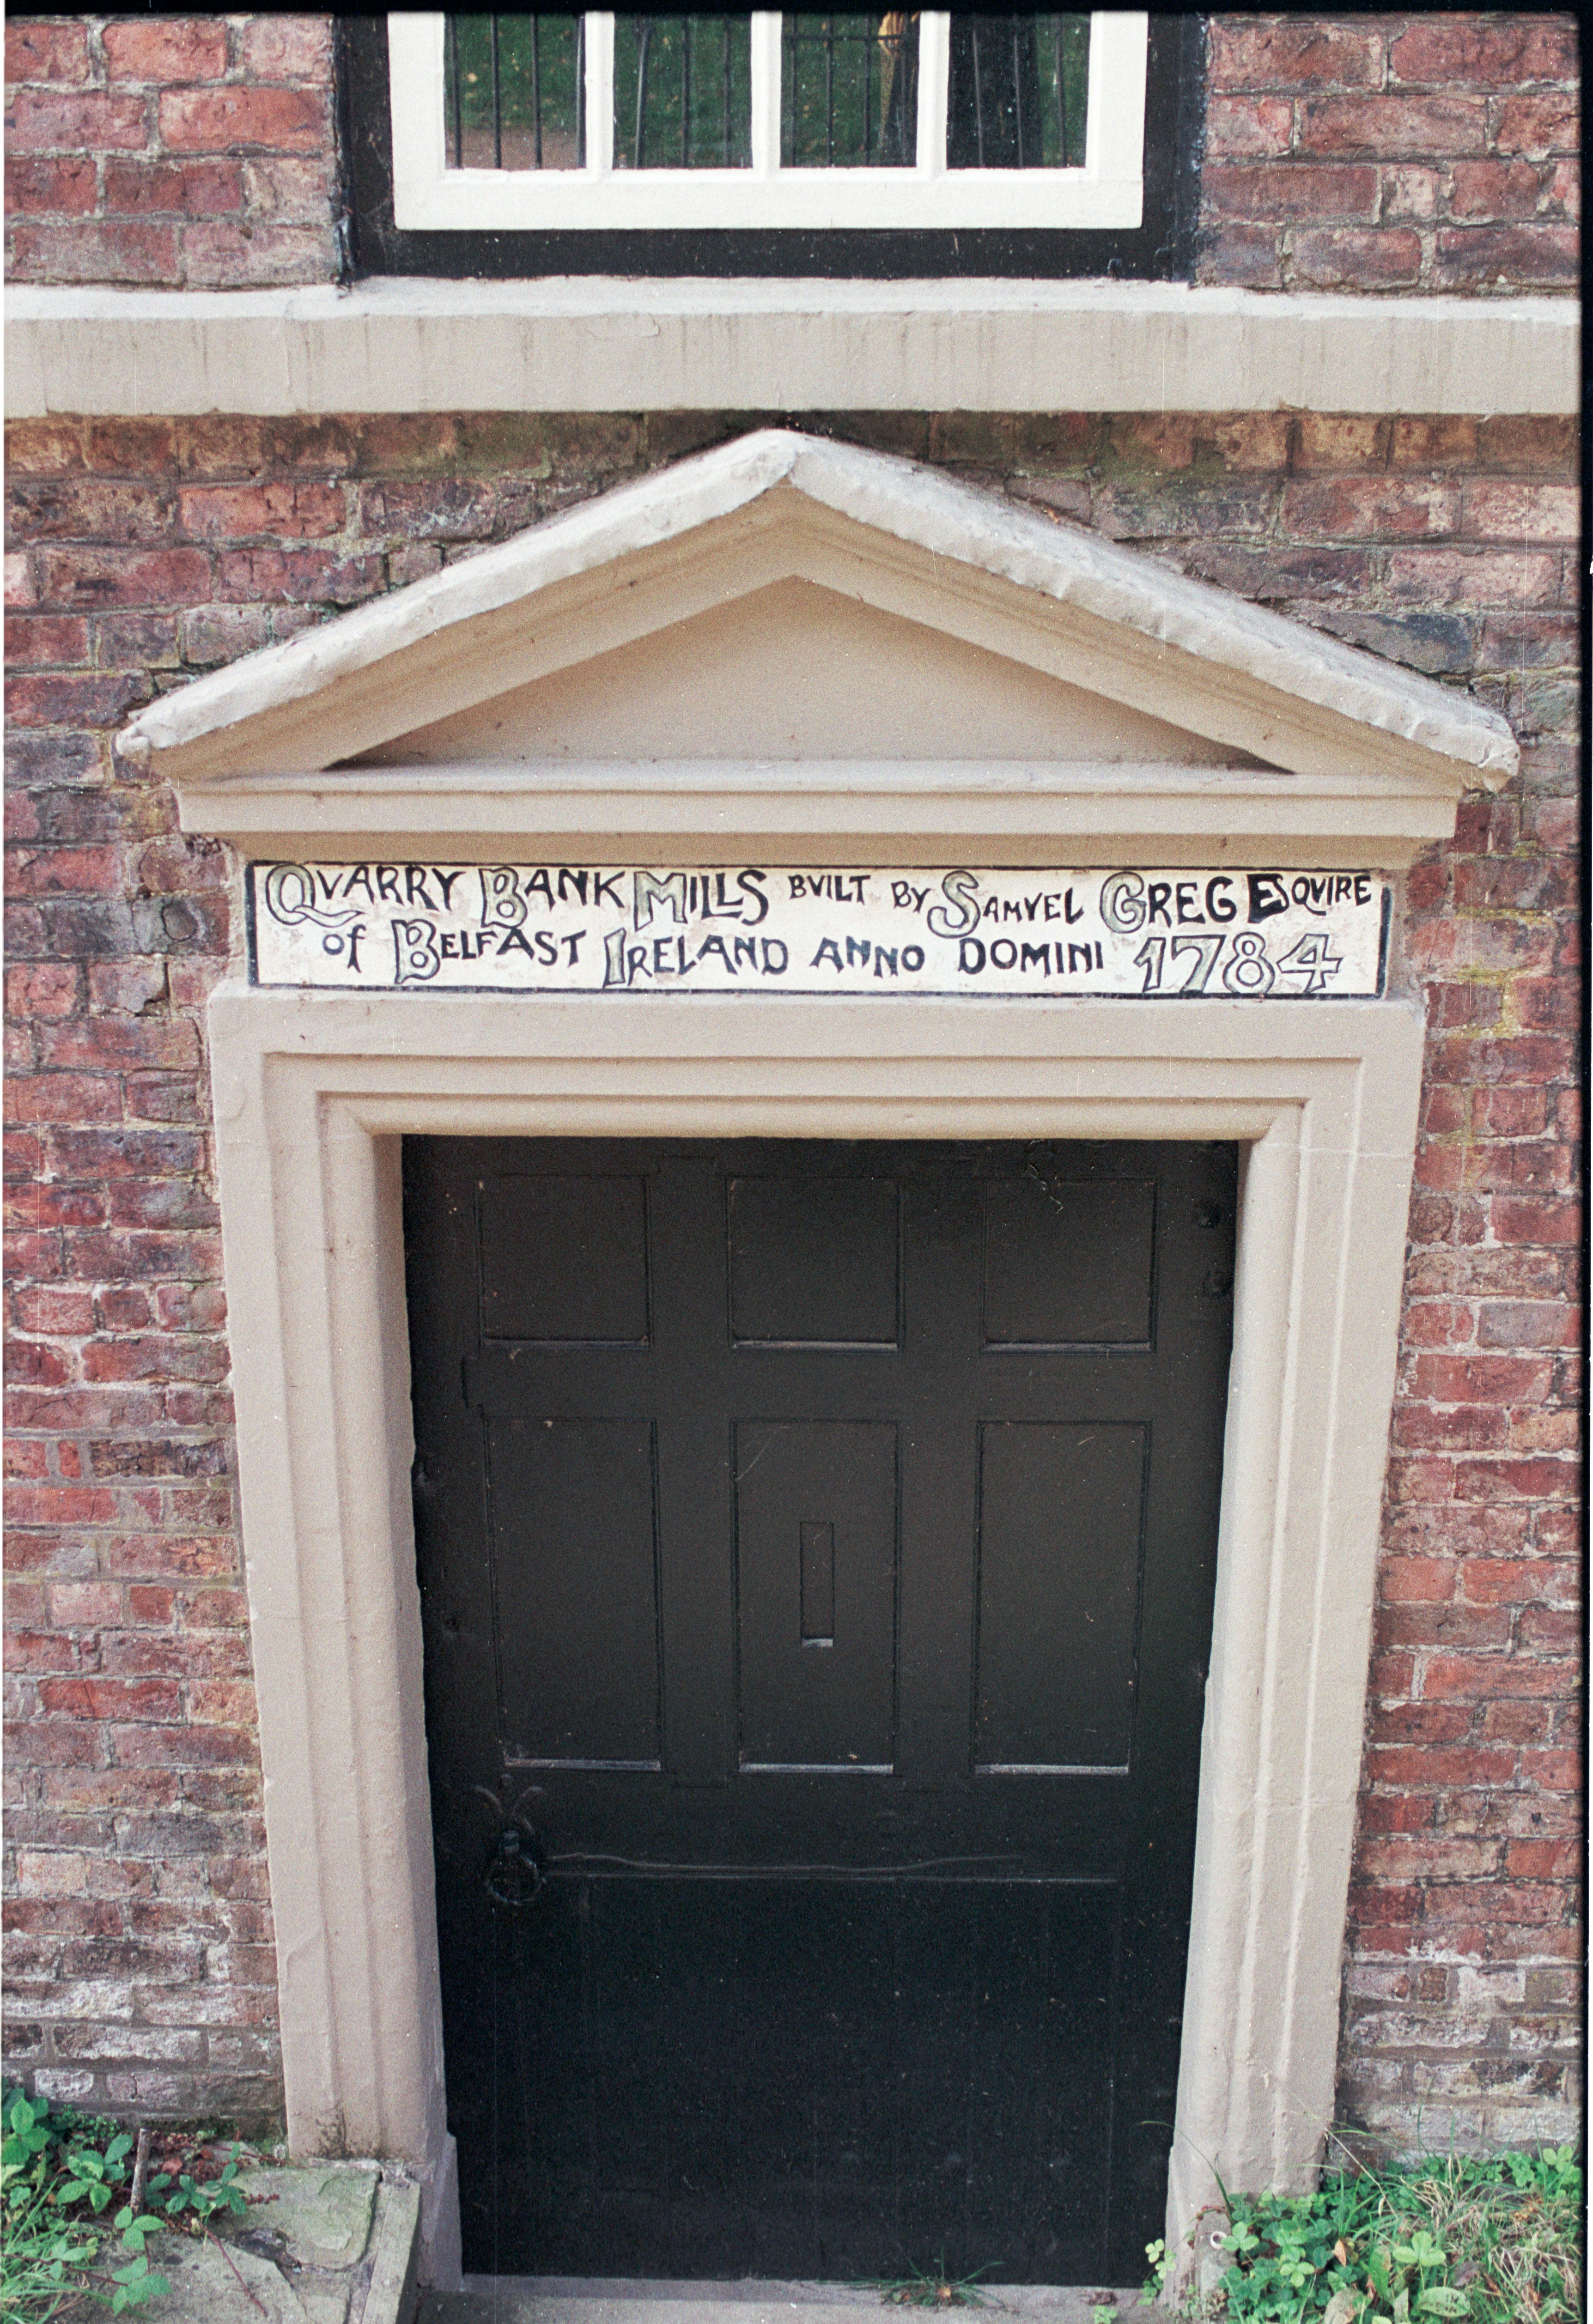 QVARRY BANK MILLS BVILT BY SAMVEL GREG ESQVIRE
of BELFAST IRELAND ANNO DOMINI 1784